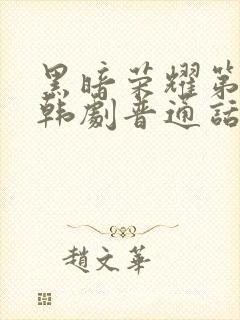 黑暗荣耀第
韩劇普通話
趙文華